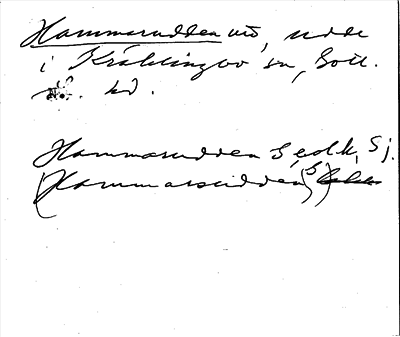 Hammarudden urd, udde
i Kräklingbo sn, Gotl.
kd.
Hammarudden S, eol.k, Sj.
(Hammarudden S)